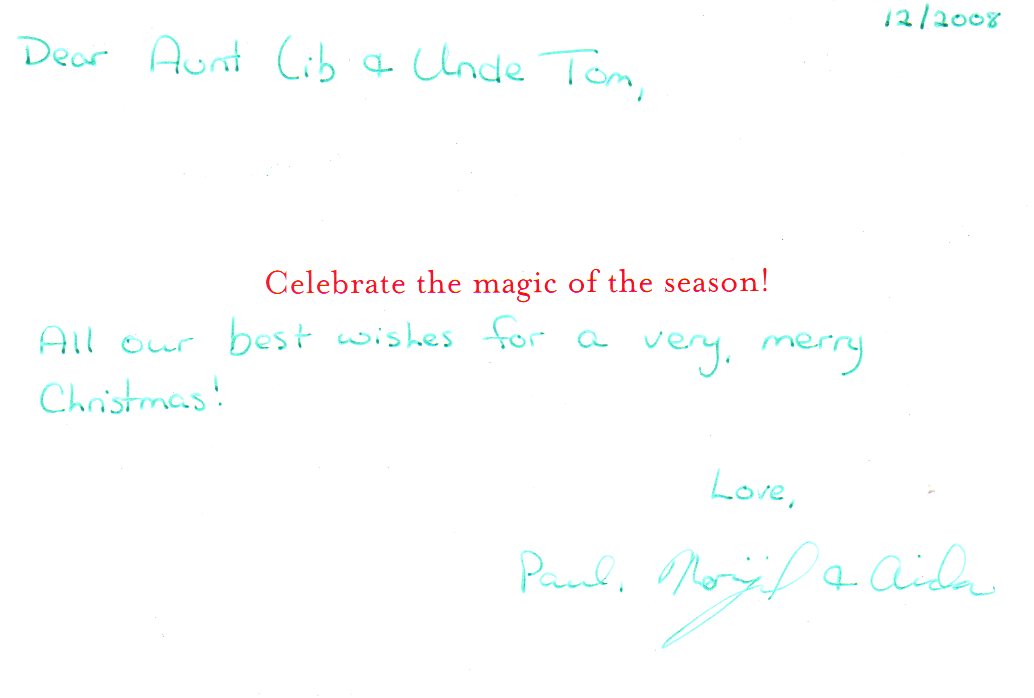 12/2008
Dear Aunt Lib & Uncle Tom,
Celebrate the magic of the season!
All our best wishes for a very, merry
Christmas!
Love,
Paul, & Aida